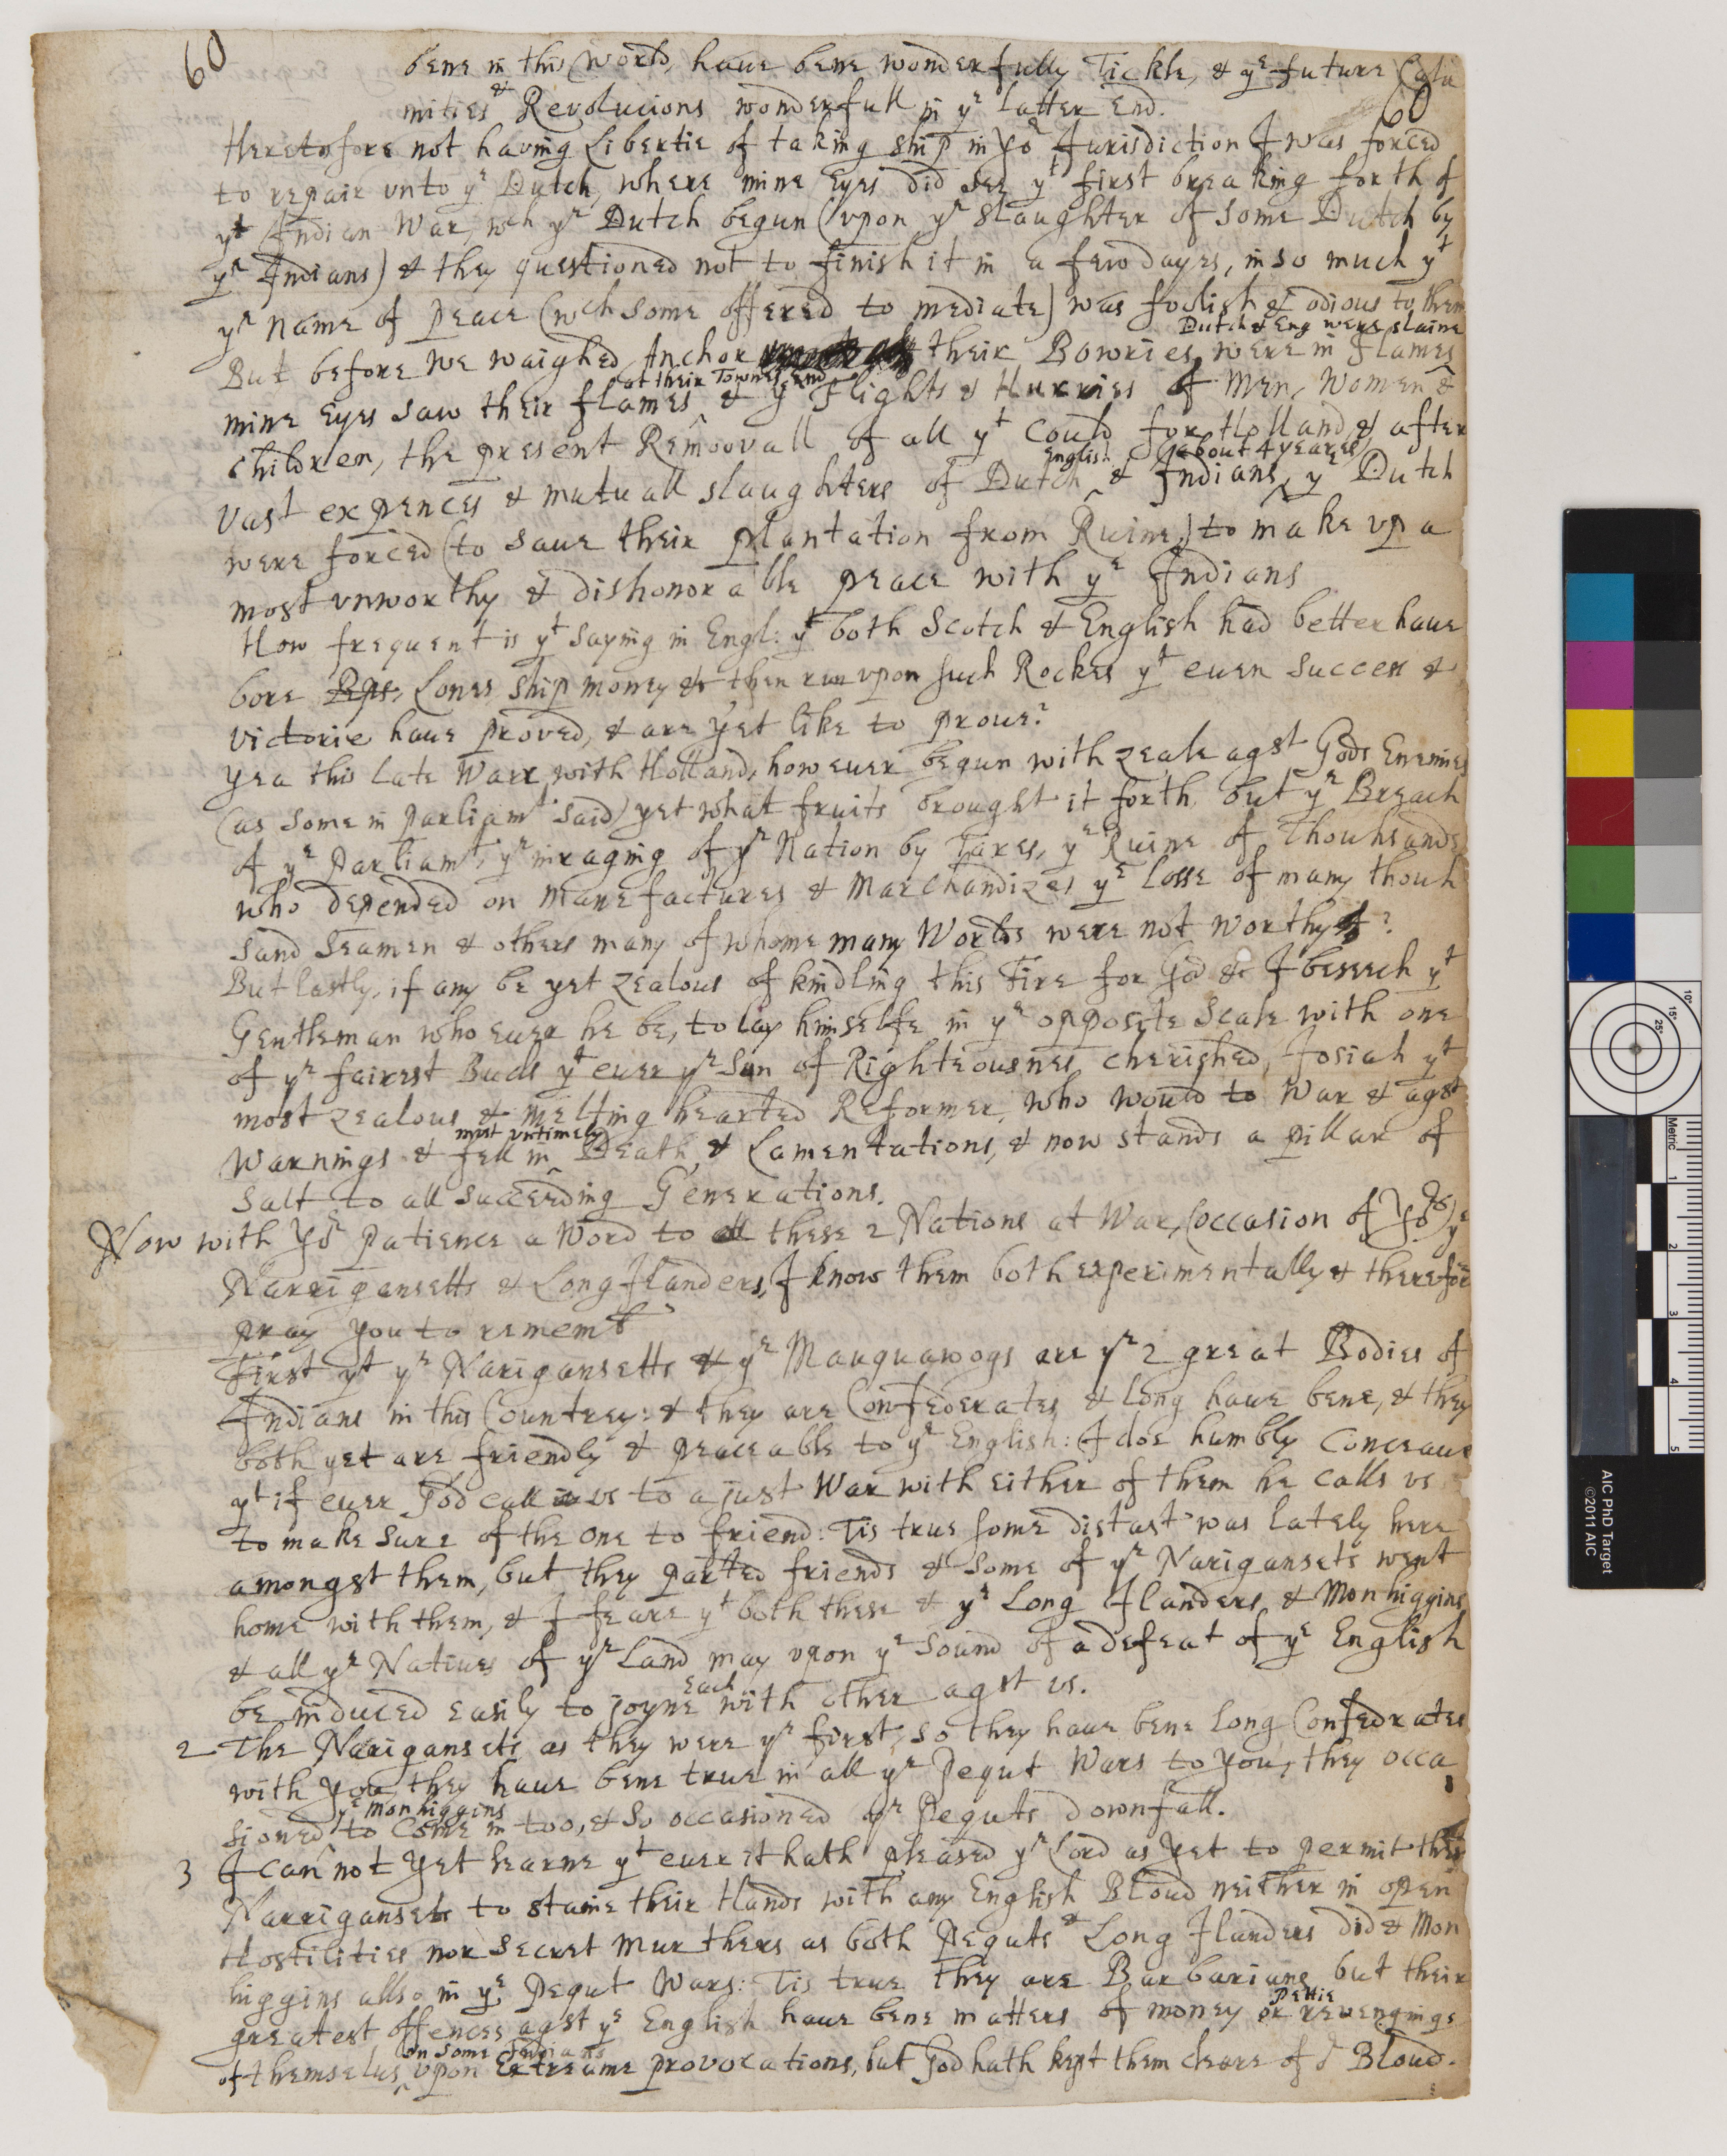 60
bene in this World, haue bene wonderfully Tickle, & yͤ future Cala
60
mities & Revolucions wonderfull in yͤ latter End.
Heretofore not having Libertie of taking ship in Yoͬ Jurisdiction I was forced
to repair vnto yͤ Dutch, where mine Eyes did see yͭ first breaking forth of
yͭ Indian War, wch yͤ Dutch begun (vpon yͤ slaughter of some Dutch by
yͤ Indians) & they questioned not to finish it in a few dayes, in so much yͭ
yͤ name of peace (wch some offered to mediate) was foolish & odious to them
Dutch & Eng were slaine
But before we waighed Anchor their Bowries were in flames
at their Townes End
mine Eyes saw their flames & yͤ Flights & Hurries of Men, Women &
children, the present Remoovall of all yͭ could for Holland, & after
English (about 4 yeares)
vast expences & mutuall slaughters of Dutch & Indians yͤ Dutch
were forced (to saue their plantation from Ruine) to make vp a
most vnworthy & dishonorable peace with yͤ Indians
How frequent is yͭ saying in Engl: yͭ both Scotch & English had better haue
bore Lones ship money &c then run vpon such Rockes yͭ euen success &
victorie haue proved, & are yet like to proue?
Yea this late Warr with Holland, however begun with zeale agst Gods Enemies
(as some in parliamͭ said) yet what fruits brought it forth but yͤ Breach
of yͤ parliamͭ, yͤ inraging of yͤ Nation by Taxes, yͤ Ruine of thouhsands
who depended on manefactures & Marchandizes yͤ losse of many thouh
sand Seamen & others many of whome many Worlds were not worthy?
But lastly, if any be yet zealous of kindling this Fire for God &c I beseech yͭ
Gentleman who euer he be, to lay himselfe in yͤ opposite Scale with one
of yͤ fairest Buds yͭ euer yͤ Sun of Righteousnes cherished, Josiah yͭ
most zealous & melting hearted Reformer, who would to War & agst
most vntimely
Warnings & fell in Death & Lamentations, & now stands a pillar of
Salt to all succeeding Generations.
Now with Yoͬ patience a word to these 2 Nations at War, (occasion of Yoͬˢ) yͤ
Narrigansetts & Long Ilanders, I know them both experimentally & therefore
pray you to rememb
First yͭ yͤ Narigansetts & yͤ Mauquawogs are yͤ 2 great Bodies of
Indians in this Countrey: & they are Confederates & long haue bene, & they
both yet are friendly & peaceable to yͤ English: I doe humbly conceaue
yͭ if euer God call vs to a just War with either of them he calls vs
to make sure of the one to friend: Tis true some distast was lately here
amongst them, but they parted friends & some of yͤ Narigansets went
home with them, & I feare yͭ both these & yͤ Long Ilanders & Monhiggins
& all yͤ Natiues of yͤ land may vpon yͤ Sound of a defeat of yͤ English
Each
be induced easily to joyne with other agst vs.
2 The Narigansets as they were yͤ first, so they haue bene long Confedrates
with you, they haue bene true in all yͤ Pequt Wars to you, they occa
yͤ Monhiggins
sioned to come in too, & so occasioned yͤ Pequts downfall.
3 I can not yet learne yͭ euer it hath pleased yͤ Lord as yet to permit the
Narrigansets to staine their Hands with any English Bloud neither in open
Hostilities nor secret murthers as both Pequts & Long Ilanders did & Mon
higgins allso in yͤ Pequt Wars: Tis true they are Barbarians but their
pettie
greatest offences agst yͤ English haue bene matters of money or revengings
on some Indians
of themselus vpon Extreame provocations, but God hath kept them cleare of oͬ Bloud.
Metric
1
2
3
4
5
10°
15°
25°
AIC PhD Target
©2011 AIC